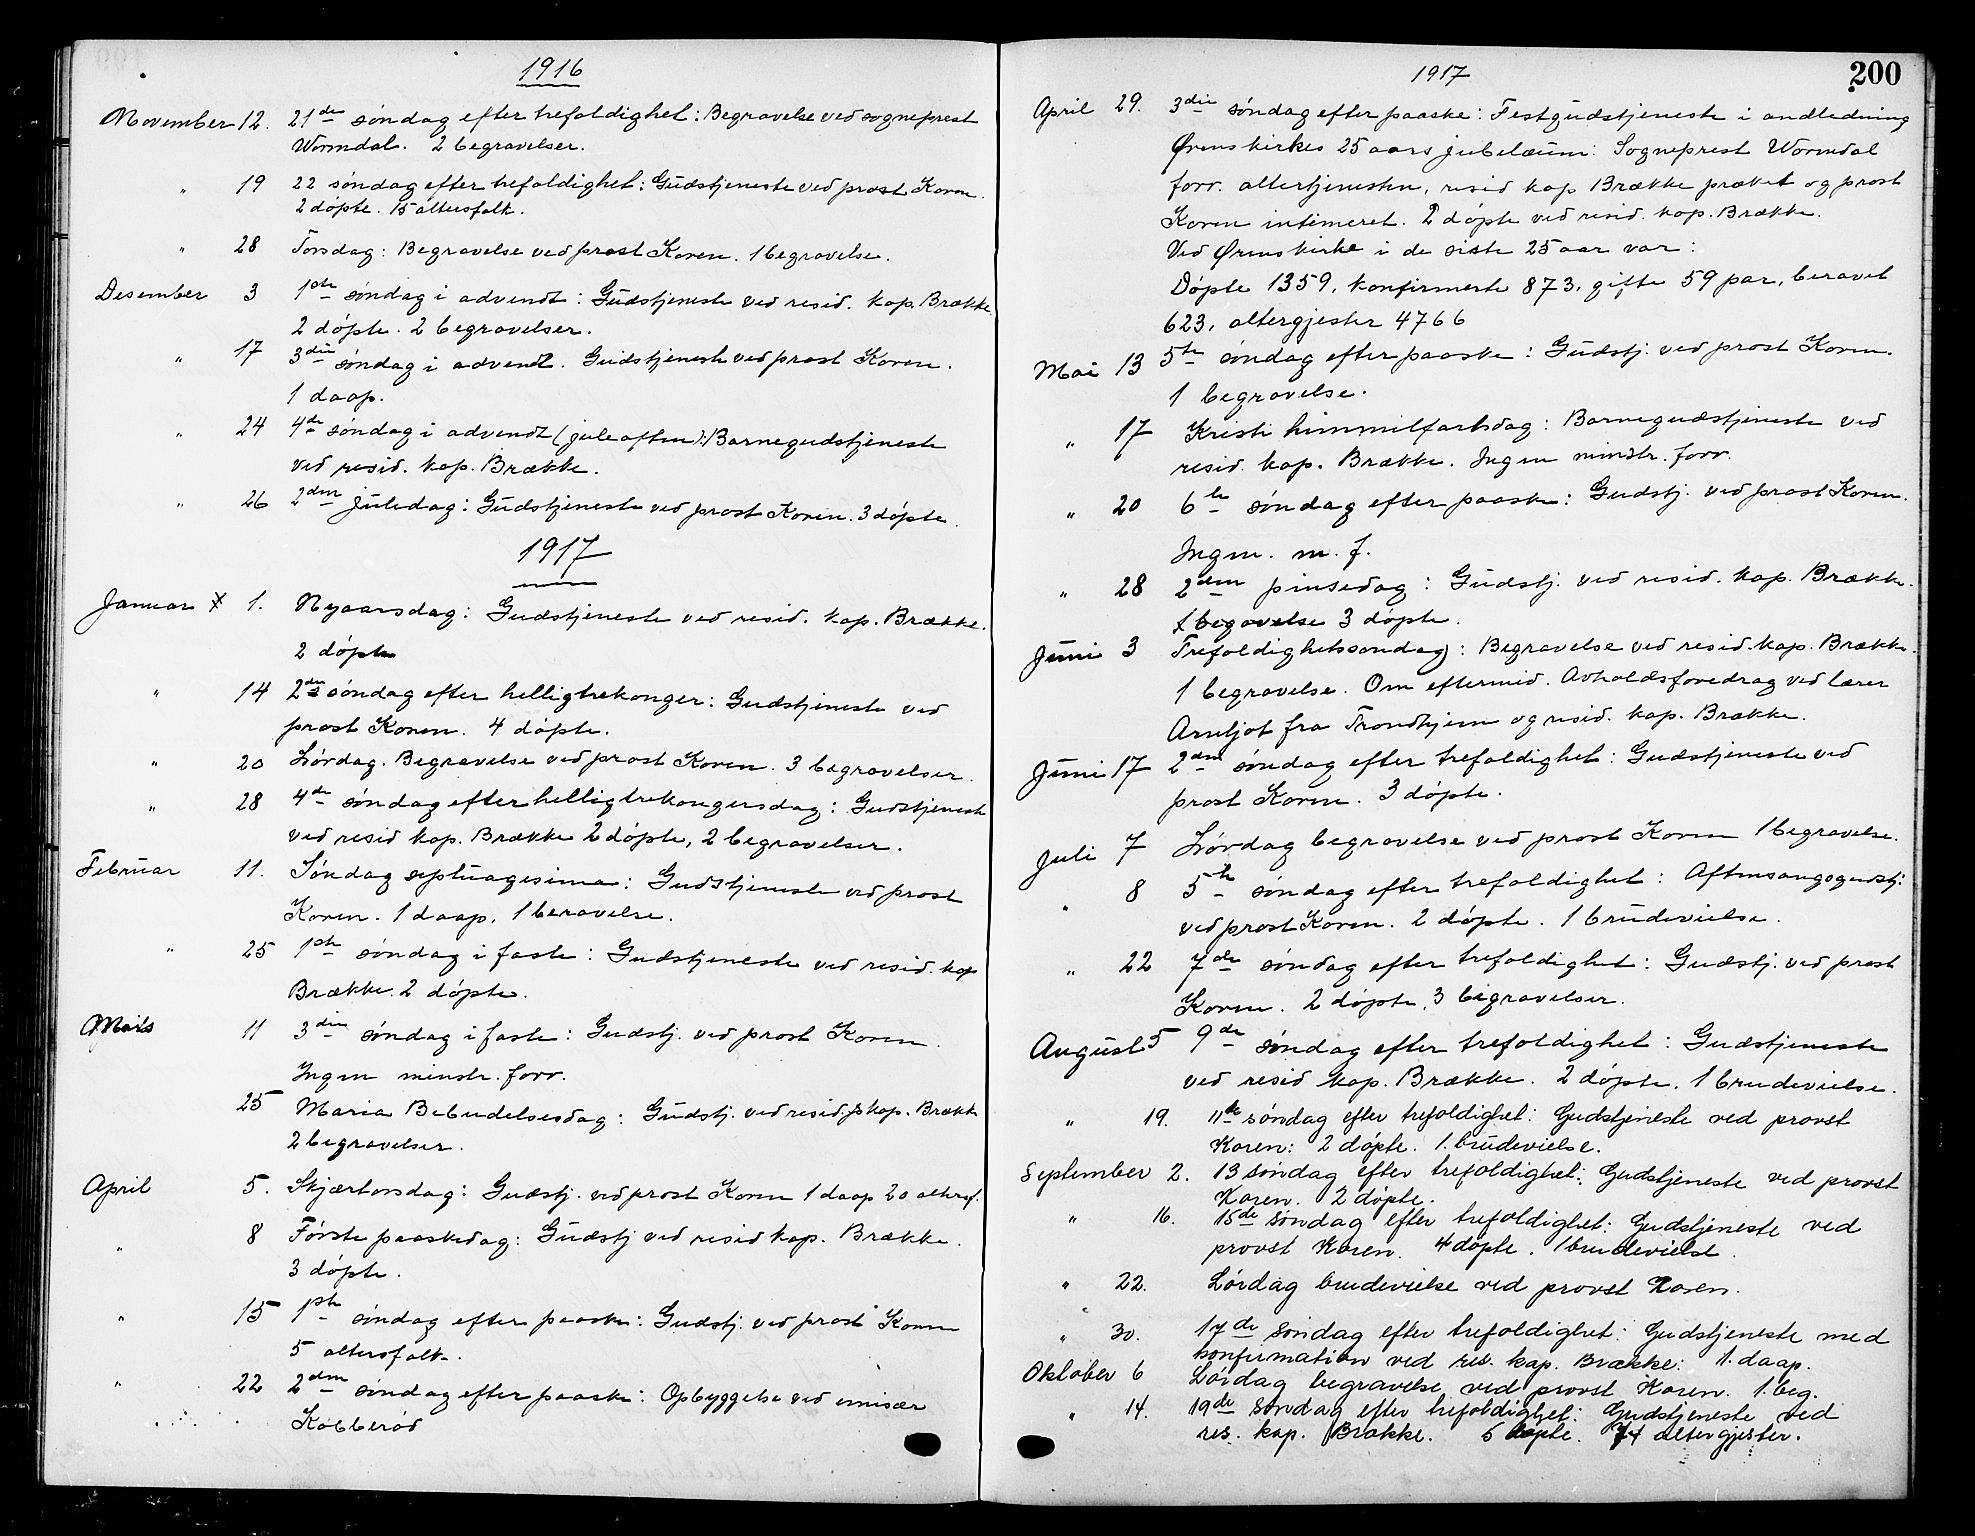 1916
November 12. 21de søndag efter trefoldighet: Begravelse ved sogneprest
Wormdal. 2 begravelser.
" 19 22 søndag efter trefoldighet: Gudstjeneste ved prost Koren.
2 døpte. 15 altersfolk.
" 28 Torsdag: Begravelse ved prost Koren. 1 begravelse.
Desember 3 1ste søndag i advendt: Gudstjeneste ved resid. kap. Brække
2 døpte. 2 begravelser.
" 17 3die søndag i advendt. Gudstjeneste ved prost Koren.
1 daap.
" 24 4de søndag i advendt (juleaften): Barnegudstjeneste
ved resid. kap. Brække.
" 26 2den juledag: Gudstjeneste ved prost Koren. 3 døpte.
1917
Januar 1. Nyaarsdag: Gudstjeneste ved resid. kap. Brække.
2 døpte
" 14 2den søndag efter helligtrekonger: Gudstjeneste ved
prost Koren. 4 døpte.
" 20 Lørdag. Begravelse ved prost Koren. 3 begravelser.
" 28 4de søndag efter helligtrekongersdag: Gudstjeneste
ved resid kap. Brække 2 døpte, 2 begravelser.
Februar 11. Søndag septuagesima: Gudstjeneste ved prost
Koren. 1 daap. 1 beravelse.
" 25 1ste søndag i faste: Gudstjeneste ved resid. kap
Brække. 2 døpte.
Mars 11 3die søndag i faste: Gudstj. ved prost Koren.
Ingen minstr. forr.
25 Maria Bebudelsesdag: Gudstj. ved resid. kap. Brække
2 begravelser.
April 5. Skjærtorsdag: Gudstj. ved prost Koren 1 daap 20 altersf.
" 8 Første paaskedag: Gudstj ved resid kap. Brække.
3 døpte.
" 15 1ste søndag efter paaske: Gudstj. ved prost Koren
5 altersfolk.
" 22 2den søndag efter paaske: Opbyggelse ved emisær
Kobberød
1917
200
April 29. 3die søndag efter paaske: Festgudstjeneste i andledning
Ørens kirkes 25 aars jubelæum: Sogneprest Wormdal
forr. altertjenesten, resid kap Brække præket og prost
Koren intimeret. 2 døpte ved resid. kap. Brække.
Ved Ørens kirke i de siste 25 aar var:
Døpte 1359, konfirmerte 873, gifte 59 par, beravet
623, altergjester 4766
Mai 13 5te søndag efter paaske: Gudstj. ved prost Koren.
1 begravelse.
" 17 Kristi himmelfartsdag: Barnegudstjeneste ved
resid. kap. Brække. Ingen minstr. forr.
" 20 6te søndag efter paaske: Gudstj. ved prost Koren.
Ingen. m. f.
" 28 2den pinsedag: Gudstj. ved resid. kap. Brække.
1 begavelse 3 døpte.
Juni 3 Trefoldighetssondag: Begravelse ved resid. kap. Brække.
1 begravelse. Om eftermid. Avholdsforedrag ved lærer
Arnljot fra Trondhjem og resid. kap. Brække.
Juni 17 2den søndag efter trefoldighet: Gudstjeneste ved
prost Koren. 3 døpte.
Juli 7 Lørdag begravelse ved prost Koren 1 begravelse.
" 8 5te søndag efter trefoldighet: Aftensangsgudstj.
ved prost Koren. 2 døpte. 1 brudevielse.
" 22 7de søndag efter trefoldighet: Gudstj. ved prost
Koren. 2 døpte, 3 begravelser.
August 5 9de søndag efter trefoldighet: Gudstjeneste
ved resid kap. Brække. 2 døpte. 1 brudevielse.
" 19. 11te søndag efter trefoldighet: Gudstjeneste ved provst
Koren: 2 døpte. 1. brudevielse.
September 2. 13 søndag efter trefoldighet: Gudstjeneste ved provst
Koren. 2 døpte.
" 16. 15de søndag efter trefoldighet: Gudstjeneste ved
provst Koren. 4 døpte. 1 brudevielse.
" 22. Lørdag brudevielse ved provst Koren.
" 30. 17de søndag efter trefoldighet: Gudstjeneste med
konfirmation ved res. kap. Brække: 1. daap.
Oktober 6 Lørdag begravelse ved provst Koren. 1. beg.
" 14. 19de søndag efter trefoldighet: Gudstjeneste ved
res. kap. Brække. 5 døpte. 74 altergjester.